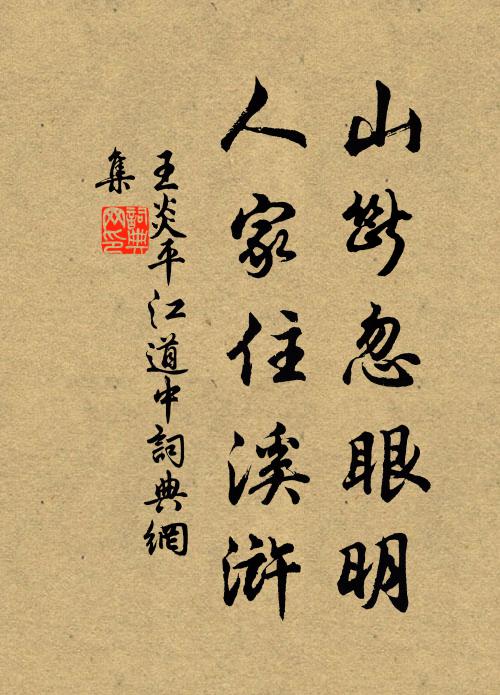 山斷忽眼明
人家住溪滸
王炎平江道中詞典網
集
詞典
网印